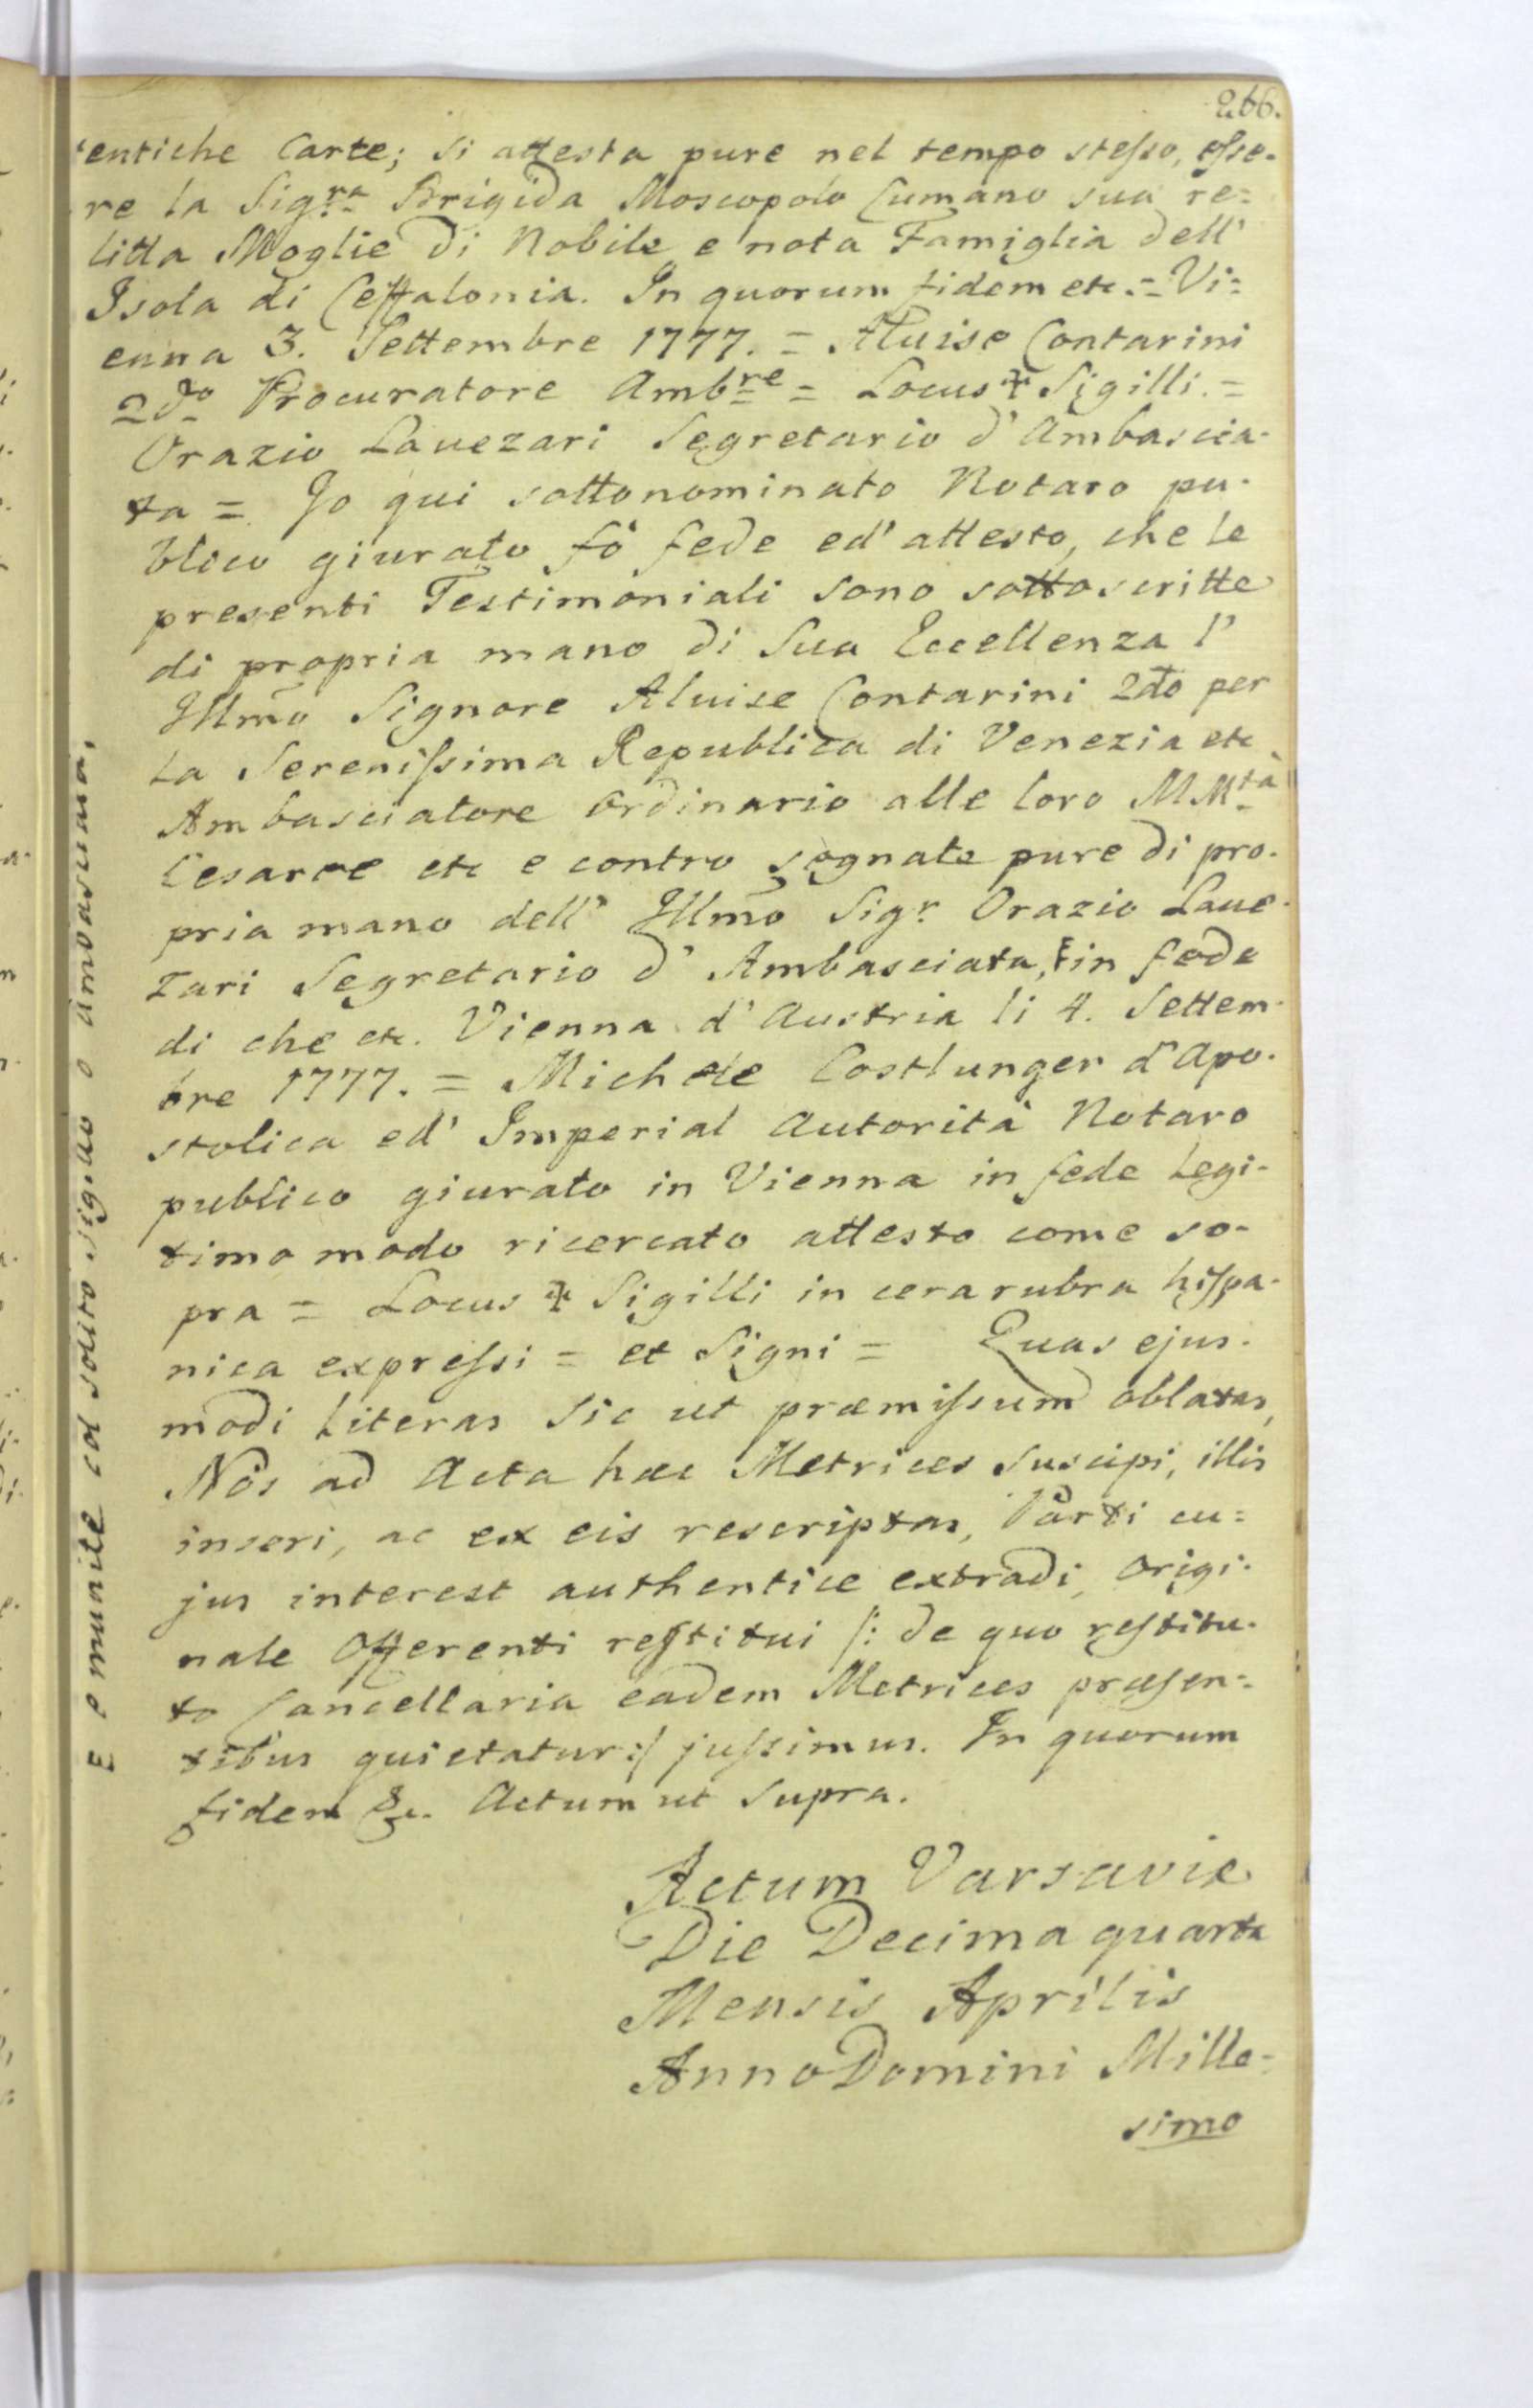 266.
tentiche Carte; si attesta pure nel tempo stesso, esse-
re la Sigra Brigida Moscopolo Cumano sua re=
litta Moglie di Nobile e nota Famiglia dell'
Isola di Ceffalonia. In quorum fidem etc. = Vi=
enna 3. Settembre 1777. = Aluise Contarini
2do Procuratore Ambre = Locus ✝ Sigilli. =
Orazio Lavezari Segretario d'Ambascia-
ta = Jo qui sottonominato Notaro pu-
blico giurato fò fede ed' attesto, che le
presenti Testimoniali sono sottoscritte
di propria mano di Sua Eccellenza l'
Illmo Signore Aluise Contarini 2do per
la Serenissima Republica di Venezia etc
Ambasciatore Ordinario alle loro MMtà
Cesaree etc e contro segnate pure di pro-
pria mano dell' Illmo Sigr Orazio Lave-
zari Segretario d' Ambasciata, ꝉ in fede
di che etc. Vienna d'Austria li 4. Settem-
bre 1777. = Michele Costlunger d'Apo-
stolica ed' Imperial Autorità Notaro
publico giurato in Vienna in fede legi-
timo modo ricercato attesto come so-
pra = Locus ✝ Sigilli in cera rubra hispa-
nica expressi = et Signi = Quas ejus-
modi Literas sic ut præmissum oblatas,
Nos ad Acta hæc Metrices suscipi, illis
inseri, ac ex eis rescriptas, Parti cu=
jus interest authentice extradi, origi-
nale Offerenti restitui /: de quo restitu-
to Cancellaria eadem Metrices præsen=
tibus quietatur :/ jussimus. In quorum
fidem &c. Actum ut supra.
Actum Varsaviæ
Die Decima quarta
Mensis Aprilis
Anno Domini Mille-
simo
E e munite col solito sigillo o ambasciata,